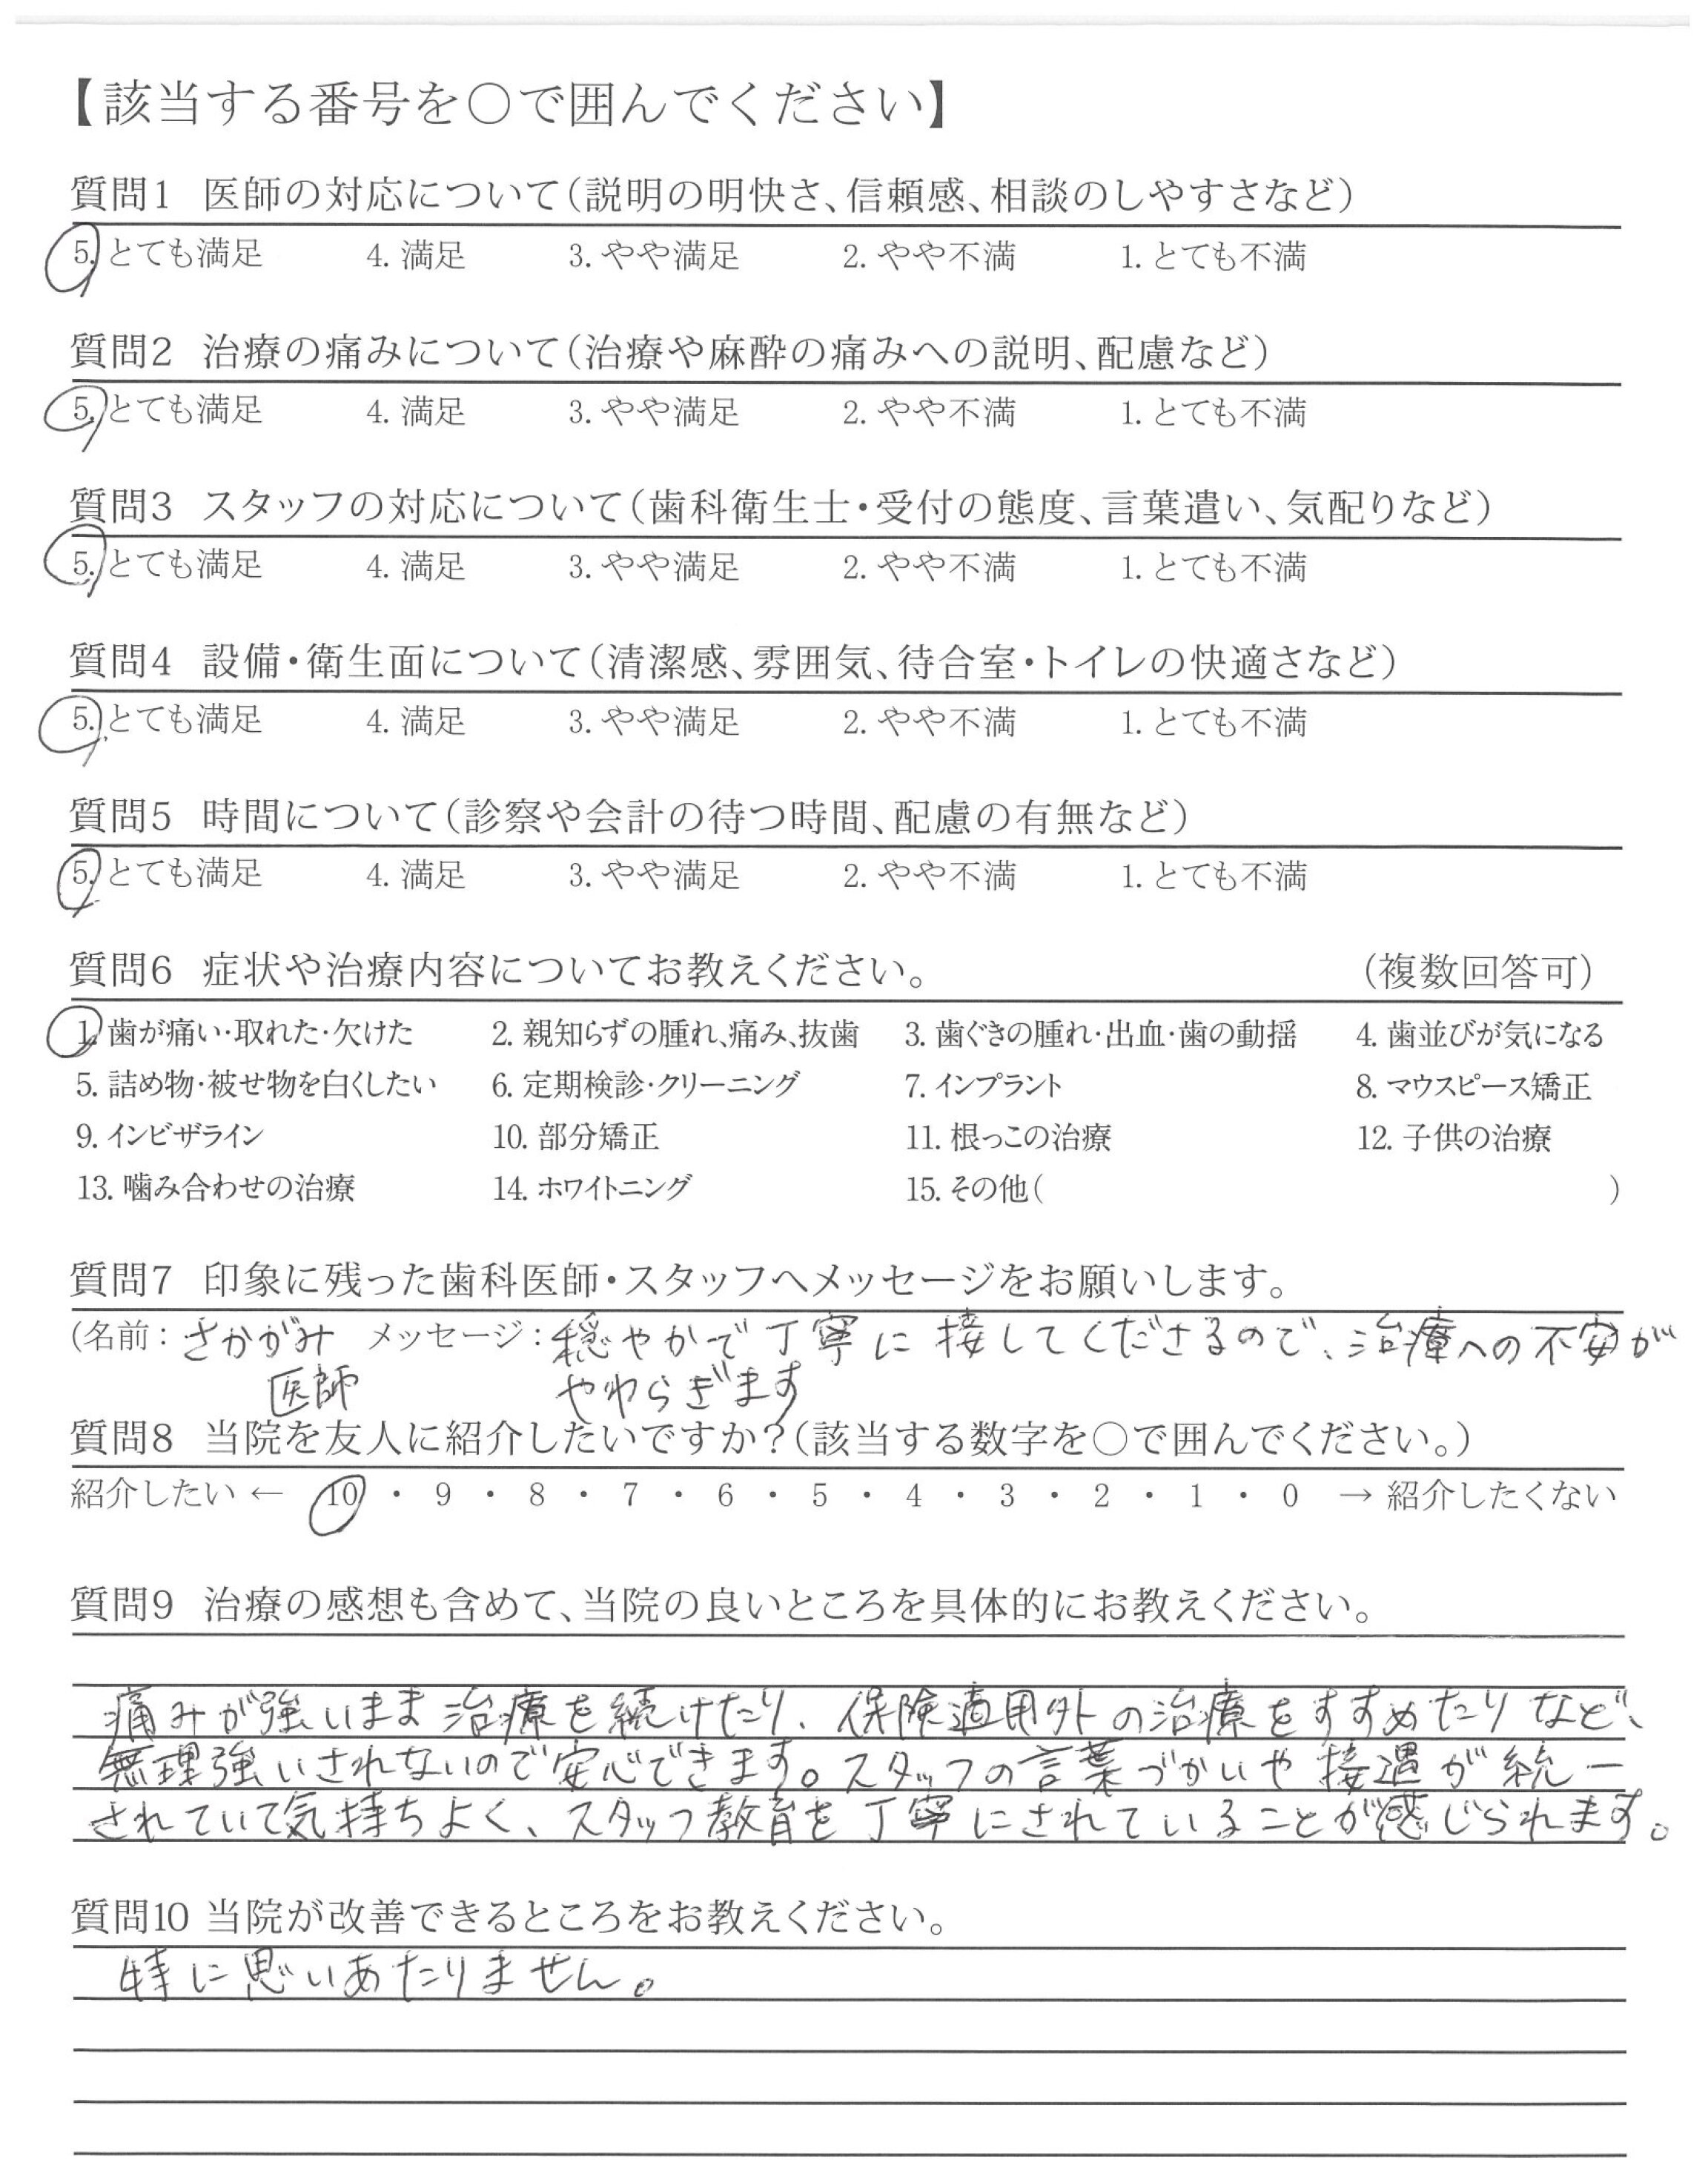 【該当する番号を〇で囲んでください】
質問1 医師の対応について(説明の明快さ、信頼感、相談のしやすさなど)
5. とても満足 4. 満足 3. やや満足 2. やや不満 1. とても不満
質問2 治療の痛みについて(治療や麻酔の痛みへの説明、配慮など)
5. とても満足 4. 満足 3. やや満足 2. やや不満 1. とても不満
質問3 スタッフの対応について(歯科衛生士・受付の態度、言葉遣い、気配りなど)
5. とても満足 4. 満足 3. やや満足 2. やや不満 1. とても不満
質問4 設備・衛生面について(清潔感、雰囲気、待合室・トイレの快適さなど)
5. とても満足 4. 満足 3. やや満足 2. やや不満 1. とても不満
質問5 時間について(診察や会計の待つ時間、配慮の有無など)
5. とても満足 4. 満足 3. やや満足 2. やや不満 1. とても不満
質問6 症状や治療内容についてお教えください。 (複数回答可)
1. 歯が痛い・取れた・欠けた 2. 親知らずの腫れ、痛み、抜歯 3. 歯ぐきの腫れ・出血・歯の動揺 4. 歯並びが気になる
5. 詰め物・被せ物を白くしたい 6. 定期検診・クリーニング 7. インプラント 8. マウスピース矯正
9. インビザライン 10. 部分矯正 11. 根っこの治療 12. 子供の治療
13. 噛み合わせの治療 14. ホワイトニング 15. その他( )
質問7 印象に残った歯科医師・スタッフへメッセージをお願いします。
(名前: さかがみ メッセージ: 穏やかで丁寧に接してくださるので、治療への不安が
医師 やわらぎます
質問8 当院を友人に紹介したいですか?(該当する数字を〇で囲んでください。)
紹介したい ← 10 ・ 9 ・ 8 ・ 7 ・ 6 ・ 5 ・ 4 ・ 3 ・ 2 ・ 1 ・ 0 → 紹介したくない
質問9 治療の感想も含めて、当院の良いところを具体的にお教えください。
痛みが強いまま治療を続けたり、保険適用外の治療をすすめたりなど、
無理強いされないので安心できます。スタッフの言葉づかいや接遇が統一
されていて気持ちよく、スタッフ教育を丁寧にされていることが感じられます。
質問10 当院が改善できるところをお教えください。
特に思いあたりません。